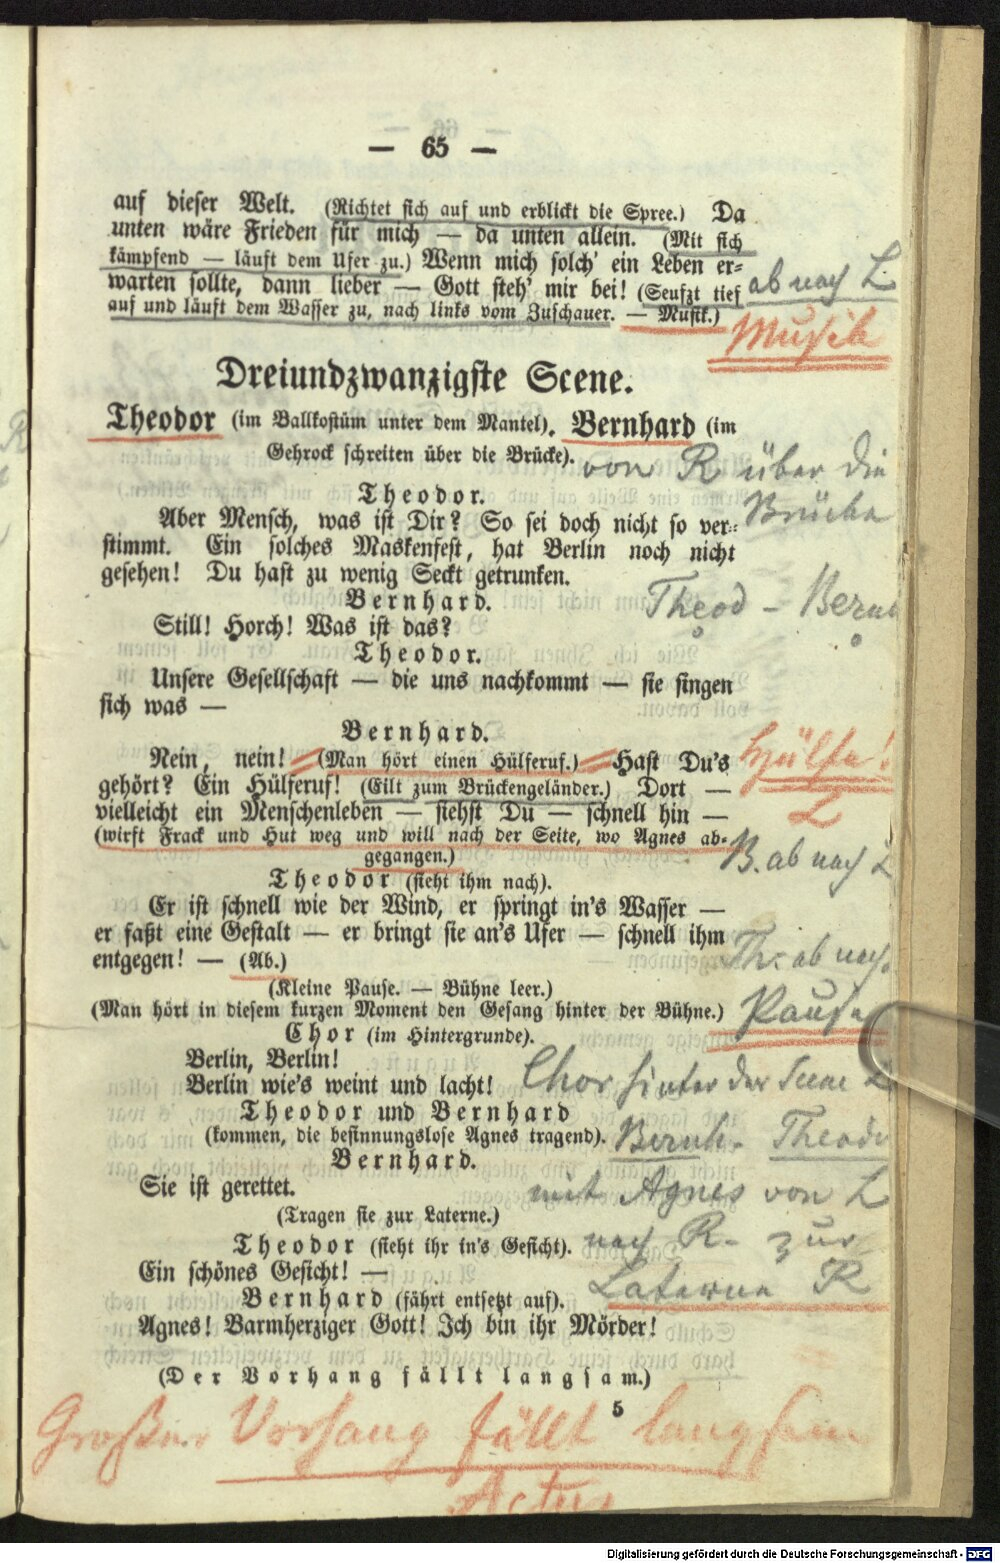 — 65 —
auf dieser Welt. (Richtet sich auf und erblickt die Spree.) Da
unten wäre Frieden für mich — da unten allein. (Mit sich
kämpfend — läuft dem Ufer zu.) Wenn mich solch' ein Leben er=
warten sollte, dann lieber — Gott steh' mir bei! (Seufzt tief
ab nach L.
auf und läuft dem Wasser zu, nach links vom Zuschauer. — Musik.)
Musik
Dreiundzwanzigste Scene.
Theodor (im Ballkostüm unter dem Mantel). Bernhard (im
Gehrock schreiten über die Brücke).
von R über die
Brücke
Theodor.
Aber Mensch, was ist Dir? So sei doch nicht so ver=
stimmt. Ein solches Maskenfest, hat Berlin noch nicht
gesehen! Du hast zu wenig Seckt getrunken.
Bernhard.
Theod - Bernh
Still! Horch! Was ist das?
Theodor.
Unsere Gesellschaft — die uns nachkommt — sie singen
sich was —
Bernhard.
Nein, nein! (Man hört einen Hülferuf.) Hast Du's
Hülfe!
gehört? Ein Hülferuf! (Eilt zum Brückengeländer.) Dort —
L
vielleicht ein Menschenleben — siehst Du — schnell hin —
(wirft Frack und Hut weg und will nach der Seite, wo Agnes ab=
gegangen.)
B. ab nach L
Theodor (sieht ihm nach).
Er ist schnell wie der Wind, er springt in's Wasser —
er faßt eine Gestalt — er bringt sie an's Ufer — schnell ihm
entgegen! — (Ab.)
Th. ab nach
(Kleine Pause. — Bühne leer.)
(Man hört in diesem kurzen Moment den Gesang hinter der Bühne.)
Pause
Chor (im Hintergrunde).
Berlin, Berlin!
Berlin wie's weint und lacht!
Chor hinter der Scene L
Theodor und Bernhard
(kommen, die besinnungslose Agnes tragend).
Bernh. Theodor
Bernhard.
Sie ist gerettet.
mit Agnes von L
(Tragen sie zur Laterne.)
Theodor (sieht ihr in's Gesicht).
nach R. zur
Ein schönes Gesicht! —
Laterne R
Bernhard (fährt entsetzt auf).
Agnes! Barmherziger Gott! Ich bin ihr Mörder!
(Der Vorhang fällt langsam.)
5
Großer Vorhang fällt langsam
Actus
Digitalisierung gefördert durch die Deutsche Forschungsgemeinschaft - DFG